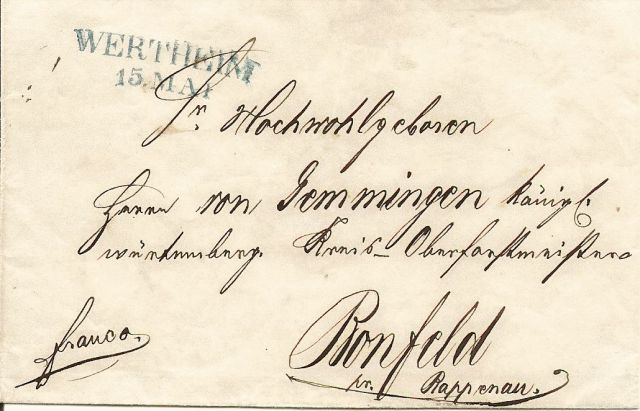 WERTHEIM
15. MAI
Sr. Hochwohlgeboren
Herrn von Gemmingen königl.
würtemberg. Kreis-Oberforstmeister
franco.
Bonfeld
pr. Rappenau.